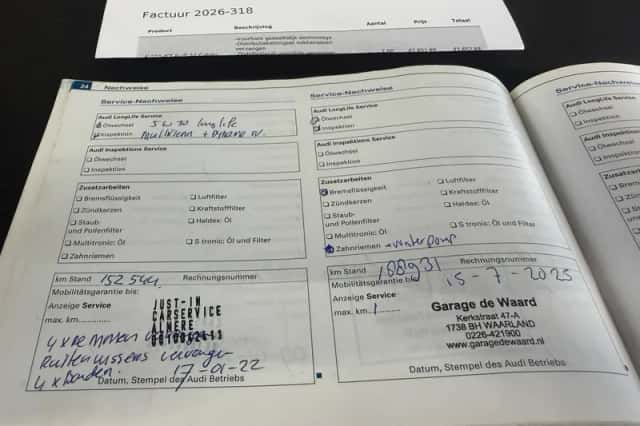 Factuur 2026-318
Product Beschrijving Aantal Prijs Totaal
24 Nachweise
Service-Nachweise
Audi LongLife Service
Ölwechsel 5w30 longlife
Inspektion
Audi Inspektions Service
Ölwechsel
Inspektion
Zusatzarbeiten
Bremsflüssigkeit Luftfilter
Zündkerzen Kraftstofffilter
Staub- Haldex: Öl
und Pollenfilter
Multitronic: Öl S tronic: Öl und Filter
Zahnriemen
km Stand 152544 Rechnungsnummer
Mobilitätsgarantie bis:
Anzeige Service
max. km
JUST-IN
CARSERVICE
ALMERE
4x remmen
Ruitenwissers vervangen
4x banden.
17-01-22
Datum, Stempel des Audi Betriebs
Service-Nachweise
Audi LongLife Service
Ölwechsel
Inspektion
Audi Inspektions Service
Ölwechsel
Inspektion
Zusatzarbeiten
Bremsflüssigkeit Luftfilter
Zündkerzen Kraftstofffilter
Staub- Haldex: Öl
und Pollenfilter
Multitronic: Öl S tronic: Öl und Filter
Zahnriemen + waterpomp
km Stand 188931 Rechnungsnummer
Mobilitätsgarantie bis: 15-7-2025
Anzeige Service
max. km
Garage de Waard
Kerkstraat 47-A
1738 BH WAARLAND
0226-421900
www.garagedewaard.nl
Datum, Stempel des Audi Betriebs
Service-Nachweise
Audi LongLife Service
Ölwechsel
Inspektion